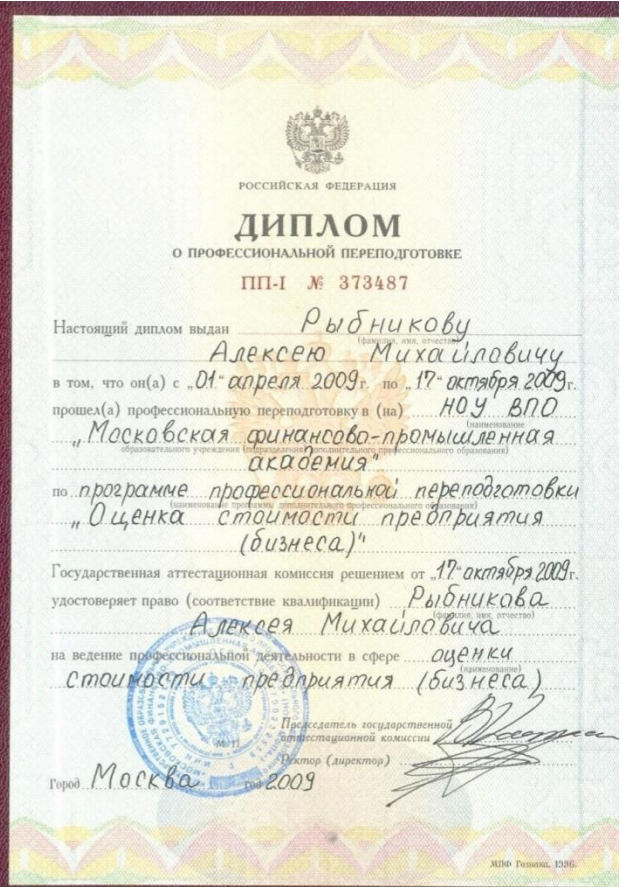 РОССИЙСКАЯ ФЕДЕРАЦИЯ
ДИПЛОМ
О ПРОФЕССИОНАЛЬНОЙ ПЕРЕПОДГОТОВКЕ
ПП-I № 373487
Настоящий диплом выдан Рыбникову
(фамилия, имя, отчество)
Алексею Михайловичу
в том, что он(а) с „01“ апреля 2009 г. по „17“ октября 2009 г.
прошел(а) профессиональную переподготовку в (на) НОУ ВПО
(наименование
„Московская финансово-промышленная
образовательного учреждения (подразделения) дополнительного профессионального образования)
академия"
по программе профессиональной переподготовки
(наименование программы дополнительного профессионального образования)
„Оценка стоимости предприятия
(бизнеса)"
Государственная аттестационная комиссия решением от „17“ октября 2009 г.
удостоверяет право (соответствие квалификации) Рыбникова
(фамилия, имя, отчество)
Алексея Михайловича
на ведение профессиональной деятельности в сфере оценки
(наименование)
стоимости предприятия (бизнеса)
Председатель государственной
аттестационной комиссии
М. П.
Ректор (директор)
Город Москва год 2009
МПФ Гознака. 1996.